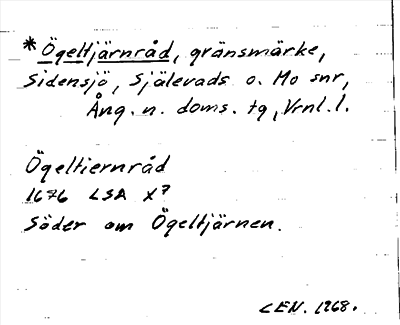 * Ögeltjärnråd, gränsmärke,
Sidensjö, Själevads o. Mo snr,
Ång. n. doms. tg, Vrnl. l.
Ögeltiernråd
1676 LSA X7
Söder om Ögeltjärnen.
CEN. 1968.